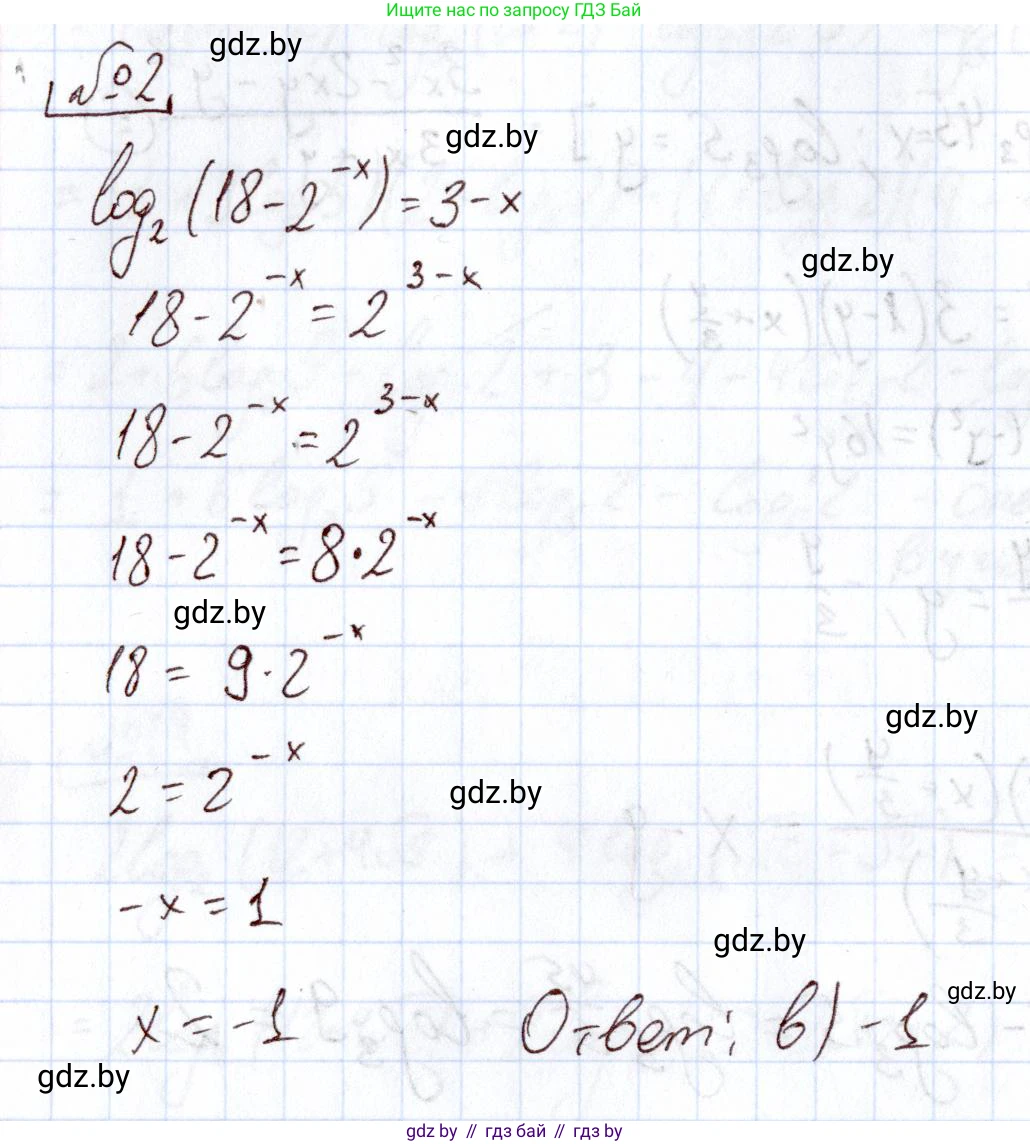 Ищите нас по запросу ГДЗ Бай
gdz.by
№2
gdz.by
log₂(18-2⁻ˣ)=3-x
gdz.by
18-2⁻ˣ=2³⁻ˣ
18-2⁻ˣ=2³⁻ˣ
18-2⁻ˣ=8·2⁻ˣ
gdz.by
18=9·2⁻ˣ
gdz.by
2=2⁻ˣ
gdz.by
-x=1
gdz.by
gdz.by
x=-1 Ответ: в) -1
gdz.by
gdz.by // гдз бай // гдз by